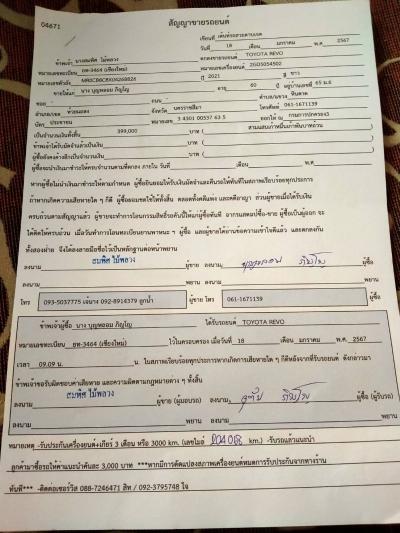 04671
สัญญาขายรถยนต์
เขียนที่ เต้นท์รถสวยตามเนต
วันที่ 18 เดือน มกราคม พ.ศ. 2567
ข้าพเจ้า ไม้พลวง ตกลงขายรถยนต์ TOYOTA REVO
หมายเลขทะเบียน ยห-3464 (เชียงใหม่) หมายเลขเครื่องยนต์ 2GD5054502
หมายเลขตัวถัง ปี 2021 สี ขาว
ขายให้แก่ นาง บุญพลอย ภิญโญ อายุ 60 ปี อยู่บ้านเลขที่ 65 ม.6
ซอย - ถนน ตำบล/แขวง หินดาด
อำเภอ/เขต ห้วยแถลง จังหวัด นครราชสีมา โทรศัพท์ 061-1671139
บัตร ประชาชน หมายเลข 3 4301 00537 63 5 ออกให้ ณ กรมการปกครอง
เป็นจำนวนเงินทั้งสิ้น 399,000 บาท ( สามแสนเก้าหมื่นเก้าพันบาทถ้วน )
ข้าพเจ้าได้รับมัดจำแล้วเป็นเงิน บาท ( )
ผู้ซื้อยังคงค้างอีกเป็นจำนวนเงิน บาท ( )
ผู้ซื้อจะนำเงินมาชำระให้ครบจำนวนตามที่ตกลง ภายใน วันที่ เดือน พ.ศ.
หากผู้ซื้อไม่นำเงินมาชำระให้ตามกำหนด ผู้ซื้อยินยอมให้ริบเงินมัดจำและคืนรถให้ทันทีในสภาพเรียบร้อยทุกประการ
ถ้าหากเกิดความเสียหายใด ๆ ก็ดี ผู้ซื้อยอมชดใช้ให้ทั้งสิ้น ตลอดทั้งคดีแพ่ง และคดีอาญา ส่วนผู้ขายเมื่อได้รับเงิน
ครบถ้วนตามสัญญาแล้ว ผู้ขายจะทำการโอนกรรมสิทธิ์รถคันนี้ให้แก่ผู้ซื้อทันที จากแสตมป์ซื้อ-ขาย ผู้ซื้อเป็นผู้ออก จะ
ได้คิดให้ครบถ้วน เมื่อวันทำการโอนทะเบียนยานพาหนะ ฯ ผู้ซื้อ และผู้ขายได้อ่านข้อความเข้าใจดีแล้ว และตกลงกัน
ทั้งสองฝ่าย จึงได้ลงลายมือชื่อไว้เป็นหลักฐานต่อหน้าพยาน
ลงนาม สมพิศ ไม้พลวง ผู้ขาย ลงนาม บุญพลอย ภิญโญ ผู้ซื้อ
ลงนาม พยาน ลงนาม พยาน
โทร 093-5037775 เจ๊นาง 092-8914379 ลูกน้ำ ผู้ขาย โทร 061-1671139 ผู้ซื้อ
ข้าพเจ้าผู้ซื้อ นาง บุญพลอย ภิญโญ ได้รับรถยนต์ TOYOTA REVO
หมายเลขทะเบียน ยห-3464 (เชียงใหม่) ไว้ในครอบครอง เมื่อวันที่ 18 เดือน มกราคม พ.ศ. 2567
เวลา 09.09 น. ในสภาพเรียบร้อยทุกประการหากเกิดการเสียหายใด ๆ ก็ดีหลังจากที่รับรถยนต์ ดังกล่าวมา
ข้าพเจ้าขอรับผิดชอบค่าเสียหาย และความผิดตามกฎหมายต่าง ๆ ทั้งสิ้น
ลงนาม สมพิศ ไม้พลวง ผู้ขาย (ผู้มอบรถ) ลงนาม ภิญโญ ผู้ซื้อ (ผู้รับรถ)
ลงนาม พยาน ลงนาม พยาน
หมายเหตุ -รับประกันเครื่องยนต์+เกียร์ 3 เดือน หรือ 3000 km. (เลขไมล์ km.) -รับรถแล้วแนะนำ
ลูกค้ามาซื้อรถให้ค่าแนะนำคันละ 3,000 บาท ***หากมีการดัดแปลงสภาพเครื่องยนต์หมดการรับประกันจากทางร้าน
ทันที*** -ติดต่อเซอร์วิส 088-7246471 สิท / 092-3795748 ใจ